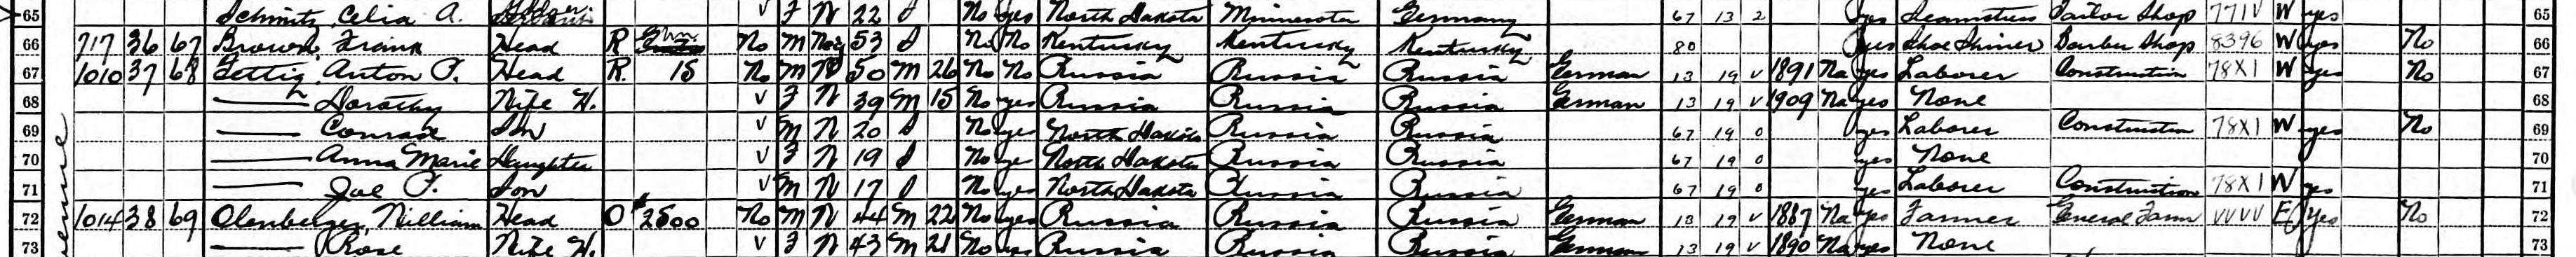 65 Schmitz, Celia A. V F W 22 S No yes North Dakota Minnesota Germany 67 13 2 yes Seamstress Tailor Shop 771V W yes 65
66 717 36 67 Brown, Frank Head R No M Neg 53 S No No Kentucky Kentucky Kentucky 80 yes Shoe Shiner Barber Shop 8396 W yes No 66
67 1010 37 68 Fettig, Anton P. Head R. 15 No M W 50 M 26 No No Russia Russia Russia German 13 19 V 1891 Na yes Laborer Construction 78X1 W yes No 67
68 — Dorothy Wife H. V F W 39 M 15 No yes Russia Russia Russia German 13 19 V 1909 Na yes None 68
69 — Conrad Son V M W 20 S No yes North Dakota Russia Russia 67 19 0 yes Laborer Construction 78X1 W yes No 69
70 — Anna Marie Daughter V F W 19 S No ye North Dakota Russia Russia 67 19 0 yes None 70
71 — Joe P. Son V M W 17 S No yes North Dakota Russia Russia 67 19 0 yes Laborer Construction 78X1 W yes 71
72 1014 38 69 Olenberger, William Head O #2500 No M W 44 M 22 No yes Russia Russia Russia German 13 19 V 1887 Na yes Farmer General Farm VVVV E yes No 72
73 — Rose Wife H. V F W 43 M 21 No yes Russia Russia Russia German 13 19 V 1890 Na yes None 73